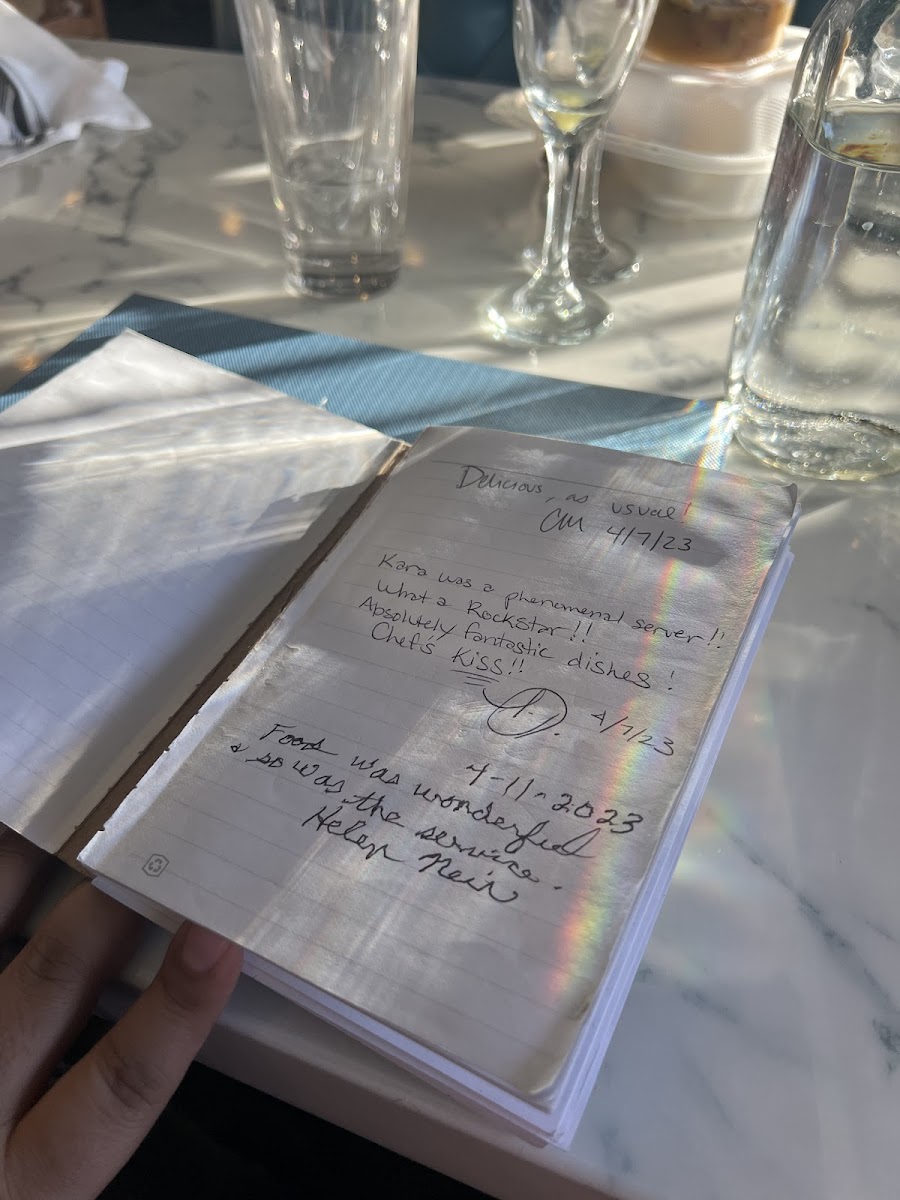 Delicious, as usual!
CM 4/7/23
Kara was a phenomenal server!!
What a Rockstar!!
Absolutely fantastic dishes!
Chef's Kiss!!
4/7/23
4-11-2023
Food was wonderful
& so was the service.
Helen